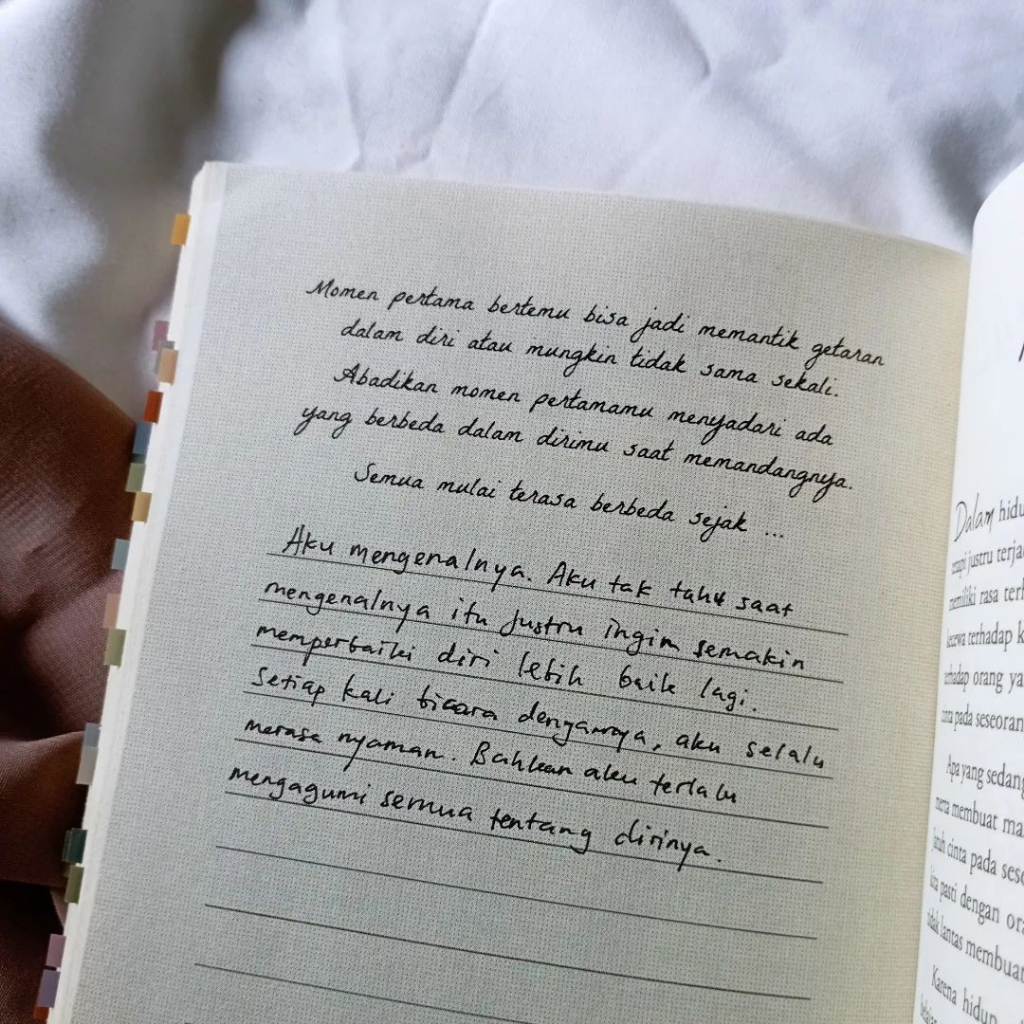 Momen pertama bertemu bisa jadi memantik getaran
dalam diri atau mungkin tidak sama sekali.
Abadikan momen pertamamu menyadari ada
yang berbeda dalam dirimu saat memandangnya.
Semua mulai terasa berbeda sejak ...
Aku mengenalnya. Aku tak tahu saat
mengenalnya itu justru ingin semakin
memperbaiki diri lebih baik lagi.
Setiap kali bicara dengannya, aku selalu
merasa nyaman. Bahkan aku terlalu
mengagumi semua tentang dirinya.
Dalam
justru
memiliki rasa
terhadap
terhadap orang
pada
Apa yang sedang
membuat
cinta pada
pasti dengan
lantas
Karena hidup